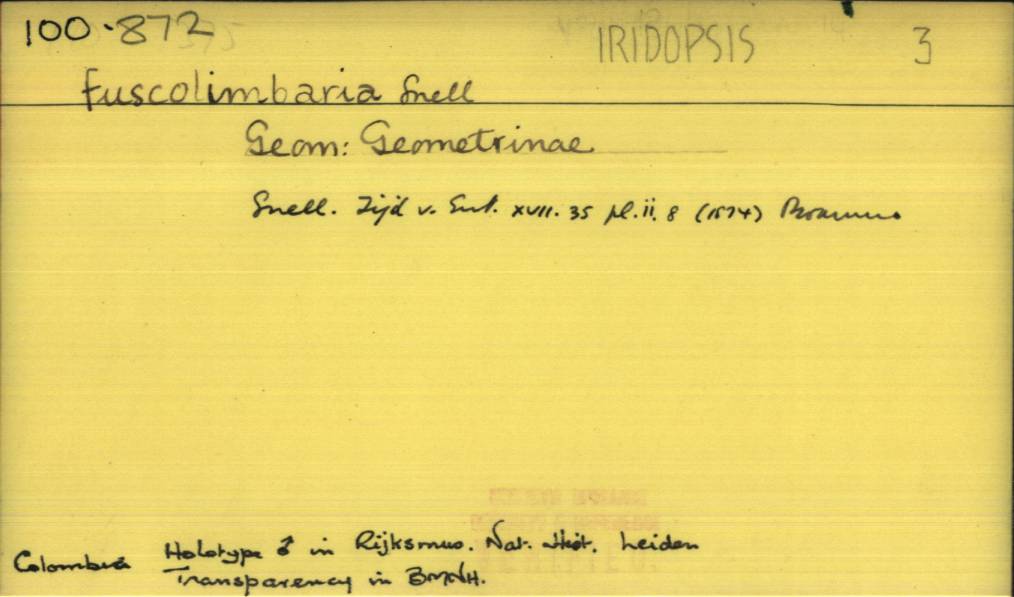 100.872 IRIDOPSIS 3
fuscolimbaria Snell
Geom: Geometrinae
Snell. Tijd v. Ent. XVII. 35 pl. ii. 8 (1874)
Holotype ♂ in Rijksmus. Nat. Hist. Leiden
Colombia
Transparency in BMNH.